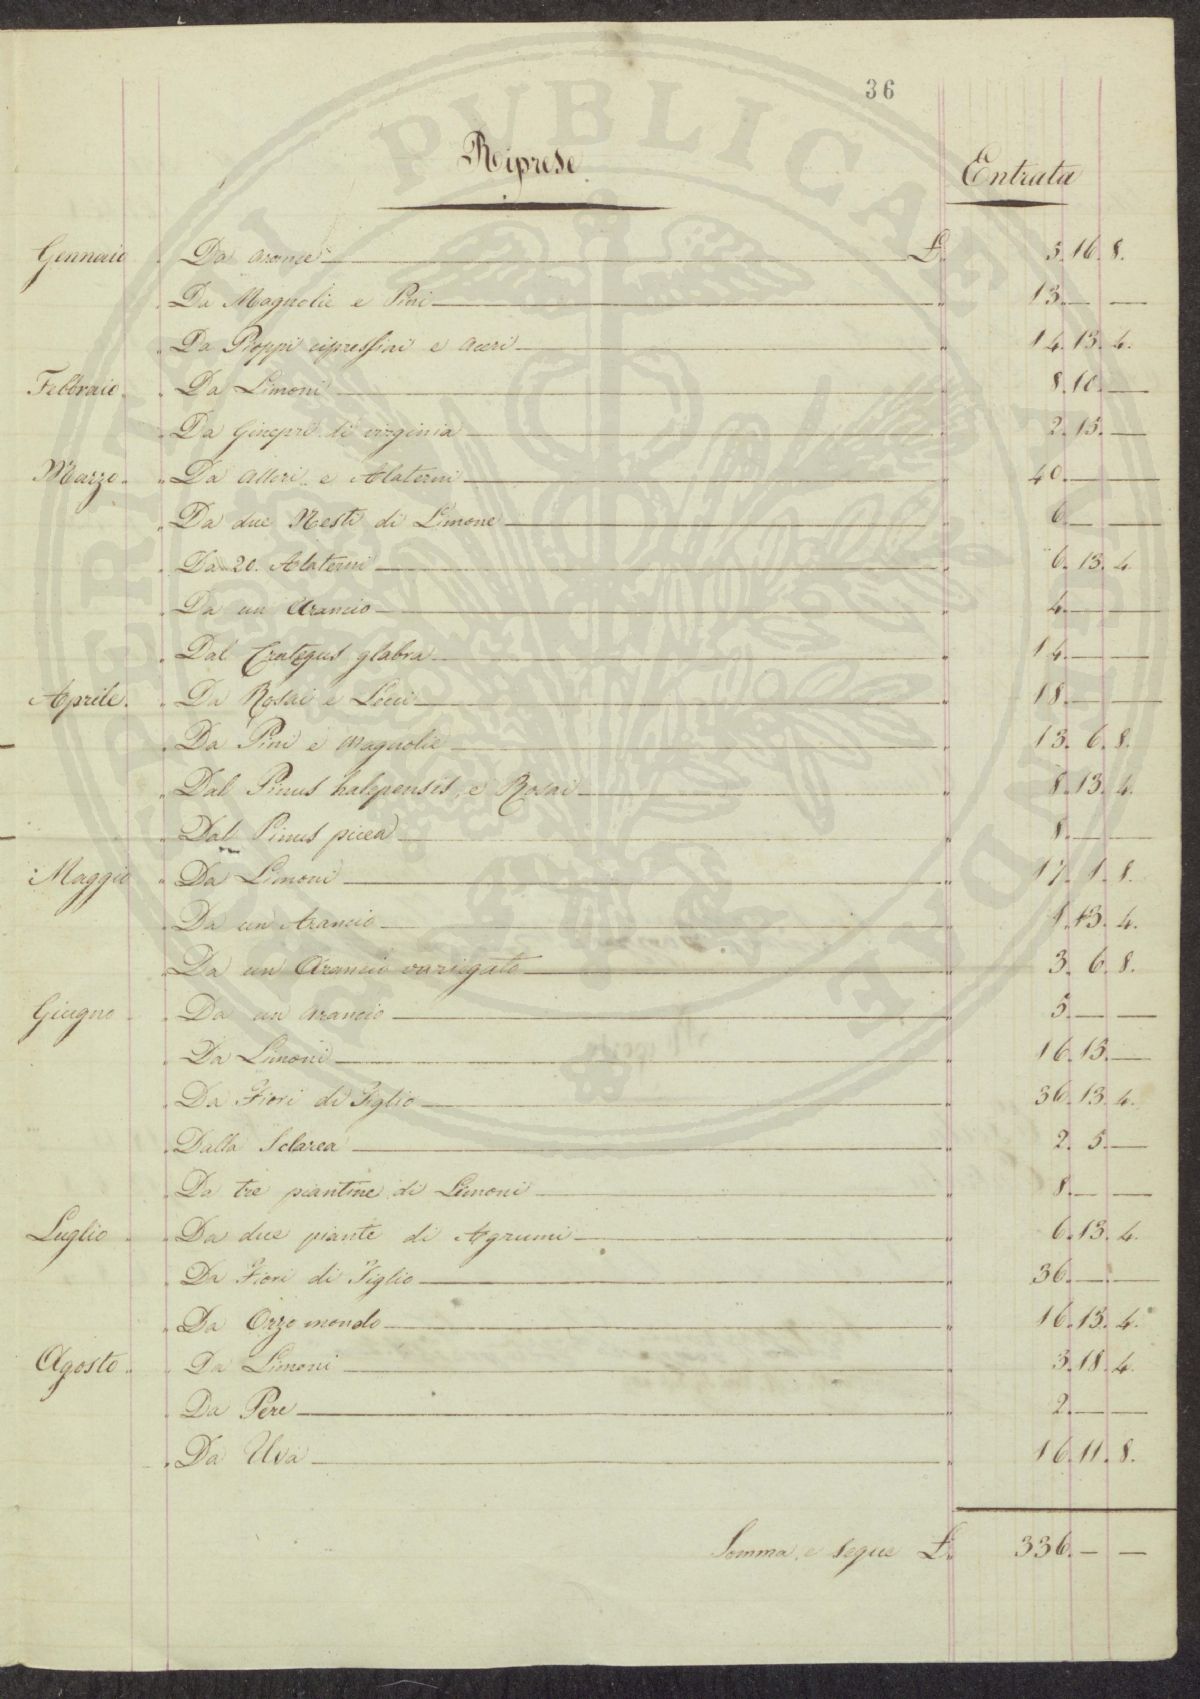 36
Riprese
Entrata
Gennaio Da arance £ 5. 16. 8.
Da Magnolie e Pini 13. — —
Da Pioppi cipressini e aceri 14. 13. 4.
Febbraio Da Limoni 8. 10. —
Da Ginepri di virginia 2. 15. —
Marzo Da Allori e Alaterni 40. — —
Da due Nesti di Limone 6 — —
Da 20. Alaterni 6. 13. 4.
Da un Arancio 4 — —
Dal Crategus glabra 14. — —
Aprile Da Rosai e Lecci 18. — —
Da Pini e Magnolie 13. 6. 8.
Dal Pinus halepensis, e Rosai 8. 13. 4.
Dal Pinus picea 8. — —
Maggio Da Limoni 17. 1. 8.
Da un Arancio 1. 13. 4.
Da un Arancio variegato 3. 6. 8.
Giugno Da un arancio 5. — —
Da Limoni 16. 13. —
Da Fiori di Tiglio 36. 13. 4.
Dalla Sclarea 2. 5. —
Da tre piantine di Limoni 8. — —
Luglio Da due piante di Agrumi 6. 13. 4.
Da Fiori di Tiglio 36. — —
Da Orzo mondo 16. 13. 4.
Agosto Da Limoni 3. 18. 4.
Da Pere 2. — —
Da Uva 16. 11. 8.
Somma, e segue £ 336. — —